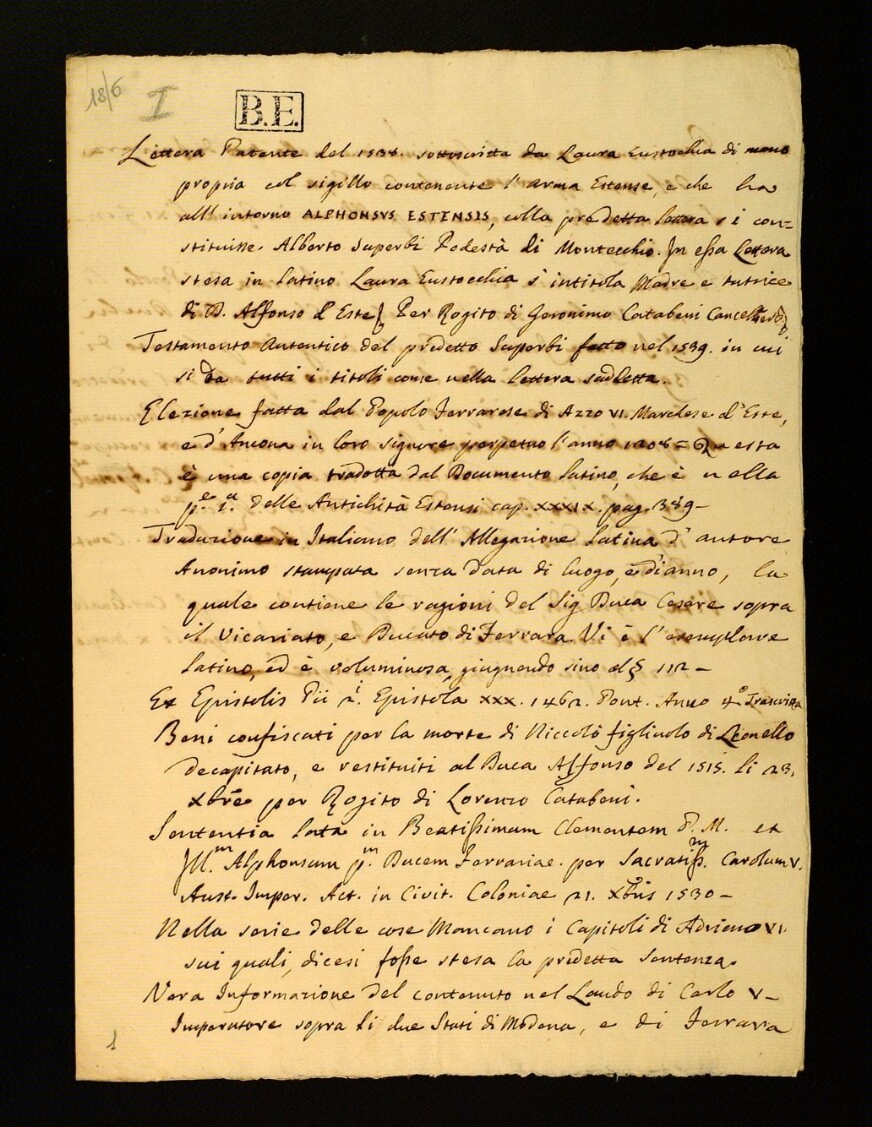 18/6
I
B.E.
Lettera Patente del 1534. sottoscritta da Laura Eustochia di mano
propria col sigillo contenente l'arma Estense, e che ha
all'intorno ALPHONSVS ESTENSIS, colla predetta lettera si con=
stituisse Alberto Superbi Podestà di Montecchio. In essa Lettera
stesa in latino Laura Eustocchia s'intitola Madre e tutrice
di D. Alfonso d'Este Per Rogito di Geronimo Catabeni
Testamento Autentico del predetto Superbi fatto nel 1539. in cui
si da tutti i titoli come nella lettera suddetta.
Elezione fatta dal Popolo Ferrarese di Azzo VI. Marchese d'Este,
e d'Ancona in loro signore perpetuo l'anno 1208 = Questa
è una copia tradotta dal Documento latino, che è nella
pe. 1a. delle Antichità Estensi cap. XXXIX. pag. 389-
Traduzione in Italiano dell'Allegazione latina d'autore
Anonimo stampata senza data di luogo, e d'anno, la
quale contiene le ragioni del Sig Duca Cesare sopra
il Vicariato, e Ducato di Ferrara Vi è l'esemplare
latino, ed è voluminosa, giugnendo sino al § 112-
Ex Epistolis Pii 2i. Epistola XXX. 1462. Pont. Anno 4o
Beni confiscati per la morte di Niccolò figliuolo di Leonello
decapitato, e restituiti al Duca Alfonso del 1515. li 23.
Xbre per Rogito di Lorenzo Catabeni.
Sententia lata in Beatissimum Clementem P. M. et
Ill.m Alphonsum p.m Ducem Ferrariae. per Sacratiss.m Carolum V.
Aust. Imper. Act. in Civit. Coloniae 21. Xbris 1530-
Nella serie delle cose Mancano i Capitoli di Adriano VI.
sui quali, dicesi fosse stesa la predetta Sentenza.
Vera Informazione del contenuto nel Laudo di Carlo V-
Imperatore sopra li due Stati di Modena, e di Ferrara
1